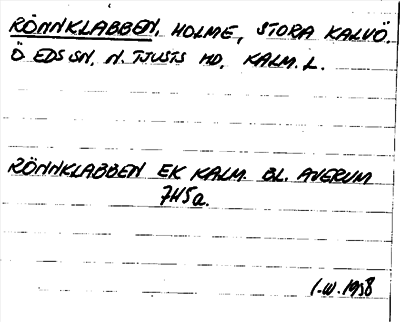 RÖNNKLABBEN, HOLME, STORA KALVÖ.
Ö. EDS SN, N. TJUSTS HD, KALM. L.
RÖNNKLABBEN EK KALM. BL. AVERUM
7H5a.
I.W. 1958